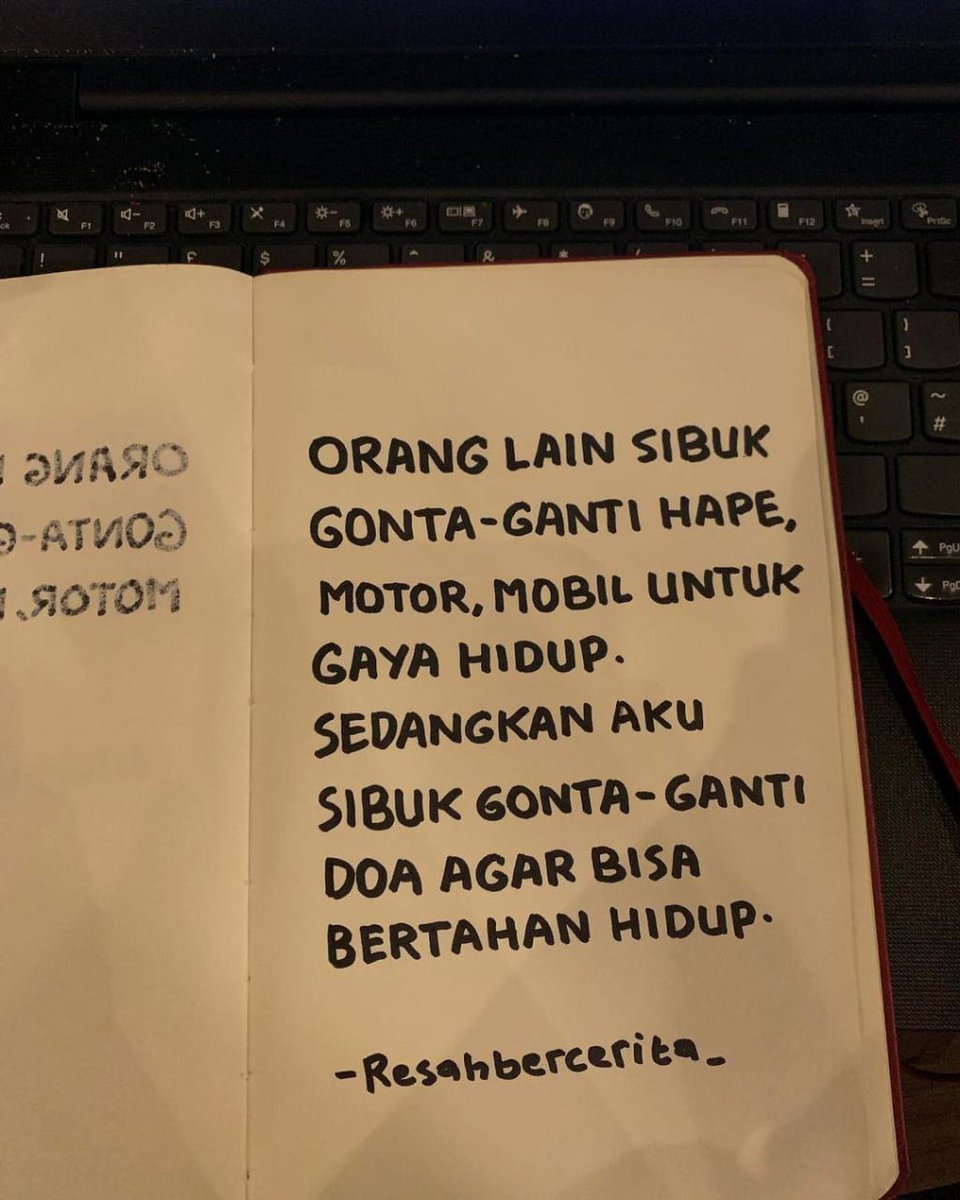 F1
F2
F3
F4
F5
F6
F7
F8
F9
F10
F11
F12
Insert
PrtSc
! " £ $ % ^ & * (
+
=
{
[
}
]
@
'
~
#
PgU
PgD
ORANG
GONTA-G
MOTOR,
ORANG LAIN SIBUK
GONTA-GANTI HAPE,
MOTOR, MOBIL UNTUK
GAYA HIDUP.
SEDANGKAN AKU
SIBUK GONTA-GANTI
DOA AGAR BISA
BERTAHAN HIDUP.
-Resahbercerita_